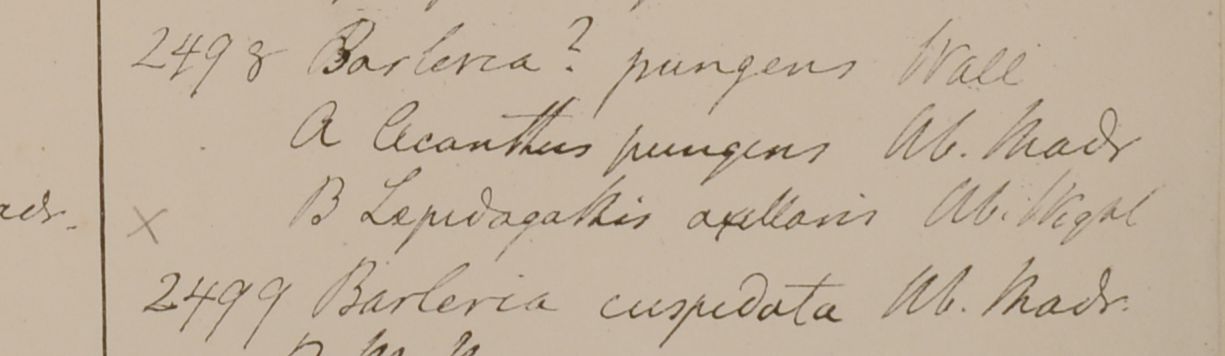 2498 Barleria? pungens Wall
A Acanthus pungens Hb. Madr
adr.
X B Lepidagathis axillaris Hb. Wight
2499 Barleria cuspidata Hb. Madr.